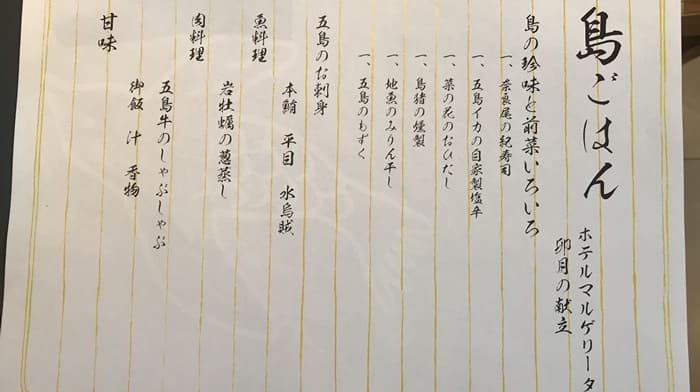 島ごはん
ホテルマルゲリータ
卯月の献立
島の珍味と前菜いろいろ
一、奈良尾の紀寿司
一、五島イカの自家製塩辛
一、菜の花のおひたし
一、島猪の燻製
一、地魚のみりん干し
一、五島のもずく
五島のお刺身
本鮪 平目 水烏賊
魚料理
岩牡蠣の葱蒸し
肉料理
五島牛のしゃぶしゃぶ
御飯 汁 香物
甘味